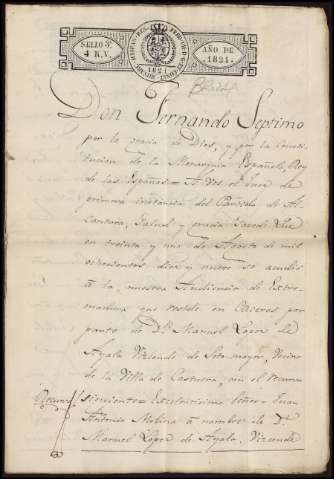 SELLO 3º
4 R.V.
1821
AÑO DE
1821.
Don Fernando Septimo
por la gracia de Dios, y por la Consti
tucion de la Monarquia Española, Rey
de las Españas = A Vos el Juez de
primera instancia del Partido de Al
cantara, Salud y gracia Sabed: Que
en treinta y uno de Agosto de mil
ochocientos diez y nueve se acudió
á la nuestra Audiencia de Extre
madura que reside en Caceres por
parte de Dn. Manuel Lopez de
Ayala Vizconde de Sotomayor, Vecino
de la Villa de Castuera, con el recurso
siguiente = Excelentisimo Señor = Juan
Antonio Molina á nombre de Dn.
Manuel Lopez de Ayala, Vizconde
Recurso